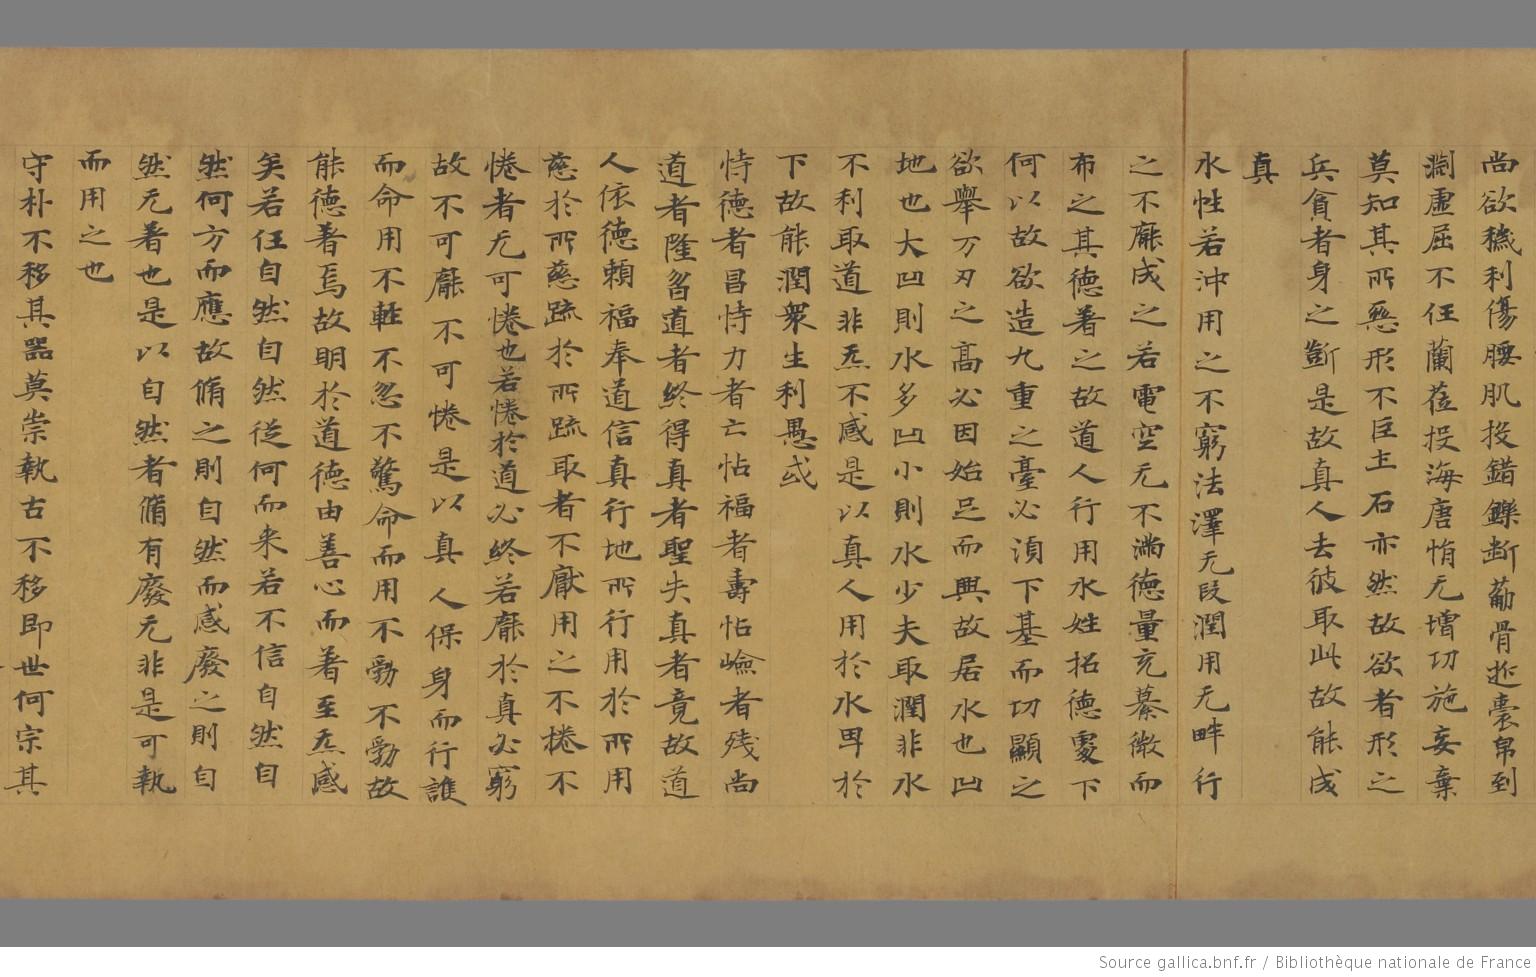 尚欲穢利傷腰肌投錯鑠断蒭骨逝橐帛到
渕虚屈不任蘭莅投海唐惰无增功施妄棄
莫知其所慈形不臣主石亦然故欲者形之
兵貪者身之斷是故真人去彼取此故能成
真
水性若沖用之不窮法澤无段潤用无畔行
之不厭成之若電空无不满德量充蓁微而
布之其德著之故道人行用水姓招德處下
何以故欲造九重之臺必湏下基而切顯之
欲舉万刃之高必因始足而興故居水也凹
地也大凹則水多凹小則水少夫取潤非水
不利取道非炁不感是以真人用於水卑於
下故能潤眾生利愚或
恃德者昌恃力者亡怗福者壽怗嶮者残尚
道者隆旨道者終得真者聖失真者竟故道
人依德賴福奉道信真行地所行用於所用
慈於所慈疏於所疏取者不猒用之不捲不
惓者无可惓也若惓於道必終若厭於真必窮
故不可厭不可惓是以真人保身而行誰
而命用不輊不忽不驚命而用不勠不勠故
能德著焉故明於道德由善心而著至炁感
矣若任自然自然従何而来若不信自然自
然何方而應故脩之則自然而感廢之則自
然无著也是以自然者脩有廢无非是可執
而用之也
守朴不移其器莫崇執古不移即世何宗其
Source gallica.bnf.fr / Bibliothèque nationale de France